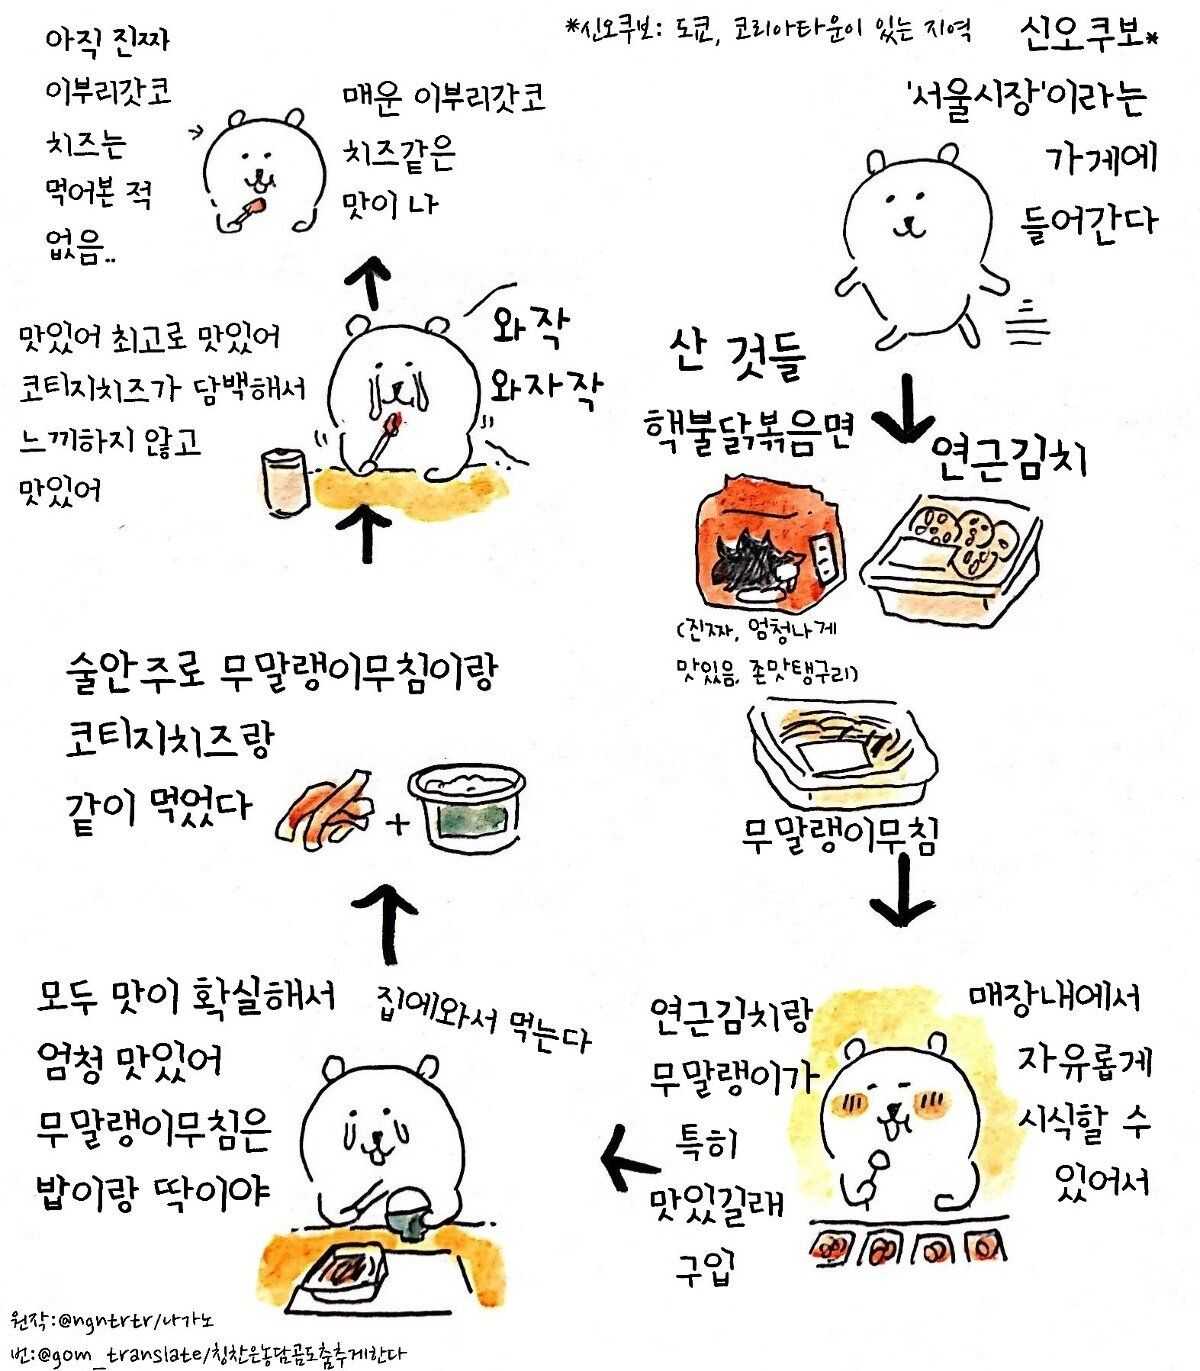 *신오쿠보: 도쿄, 코리아타운이 있는 지역
신오쿠보*
'서울시장'이라는
가게에
들어간다
산 것들
핵불닭볶음면
연근김치
(진짜, 엄청나게
맛있음, 존맛탱구리)
무말랭이무침
매장내에서
자유롭게
시식할 수
있어서
연근김치랑
무말랭이가
특히
맛있길래
구입
집에와서 먹는다
모두 맛이 확실해서
엄청 맛있어
무말랭이무침은
밥이랑 딱이야
술안주로 무말랭이무침이랑
코티지치즈랑
같이 먹었다
+
와작
와자작
맛있어 최고로 맛있어
코티지치즈가 담백해서
느끼하지 않고
맛있어
매운 이부리갓코
치즈같은
맛이 나
아직 진짜
이부리갓코
치즈는
먹어본 적
없음..
원작:@ngntrtr/나가노
번:@gom_translate/칭찬은농담곰도춤추게한다